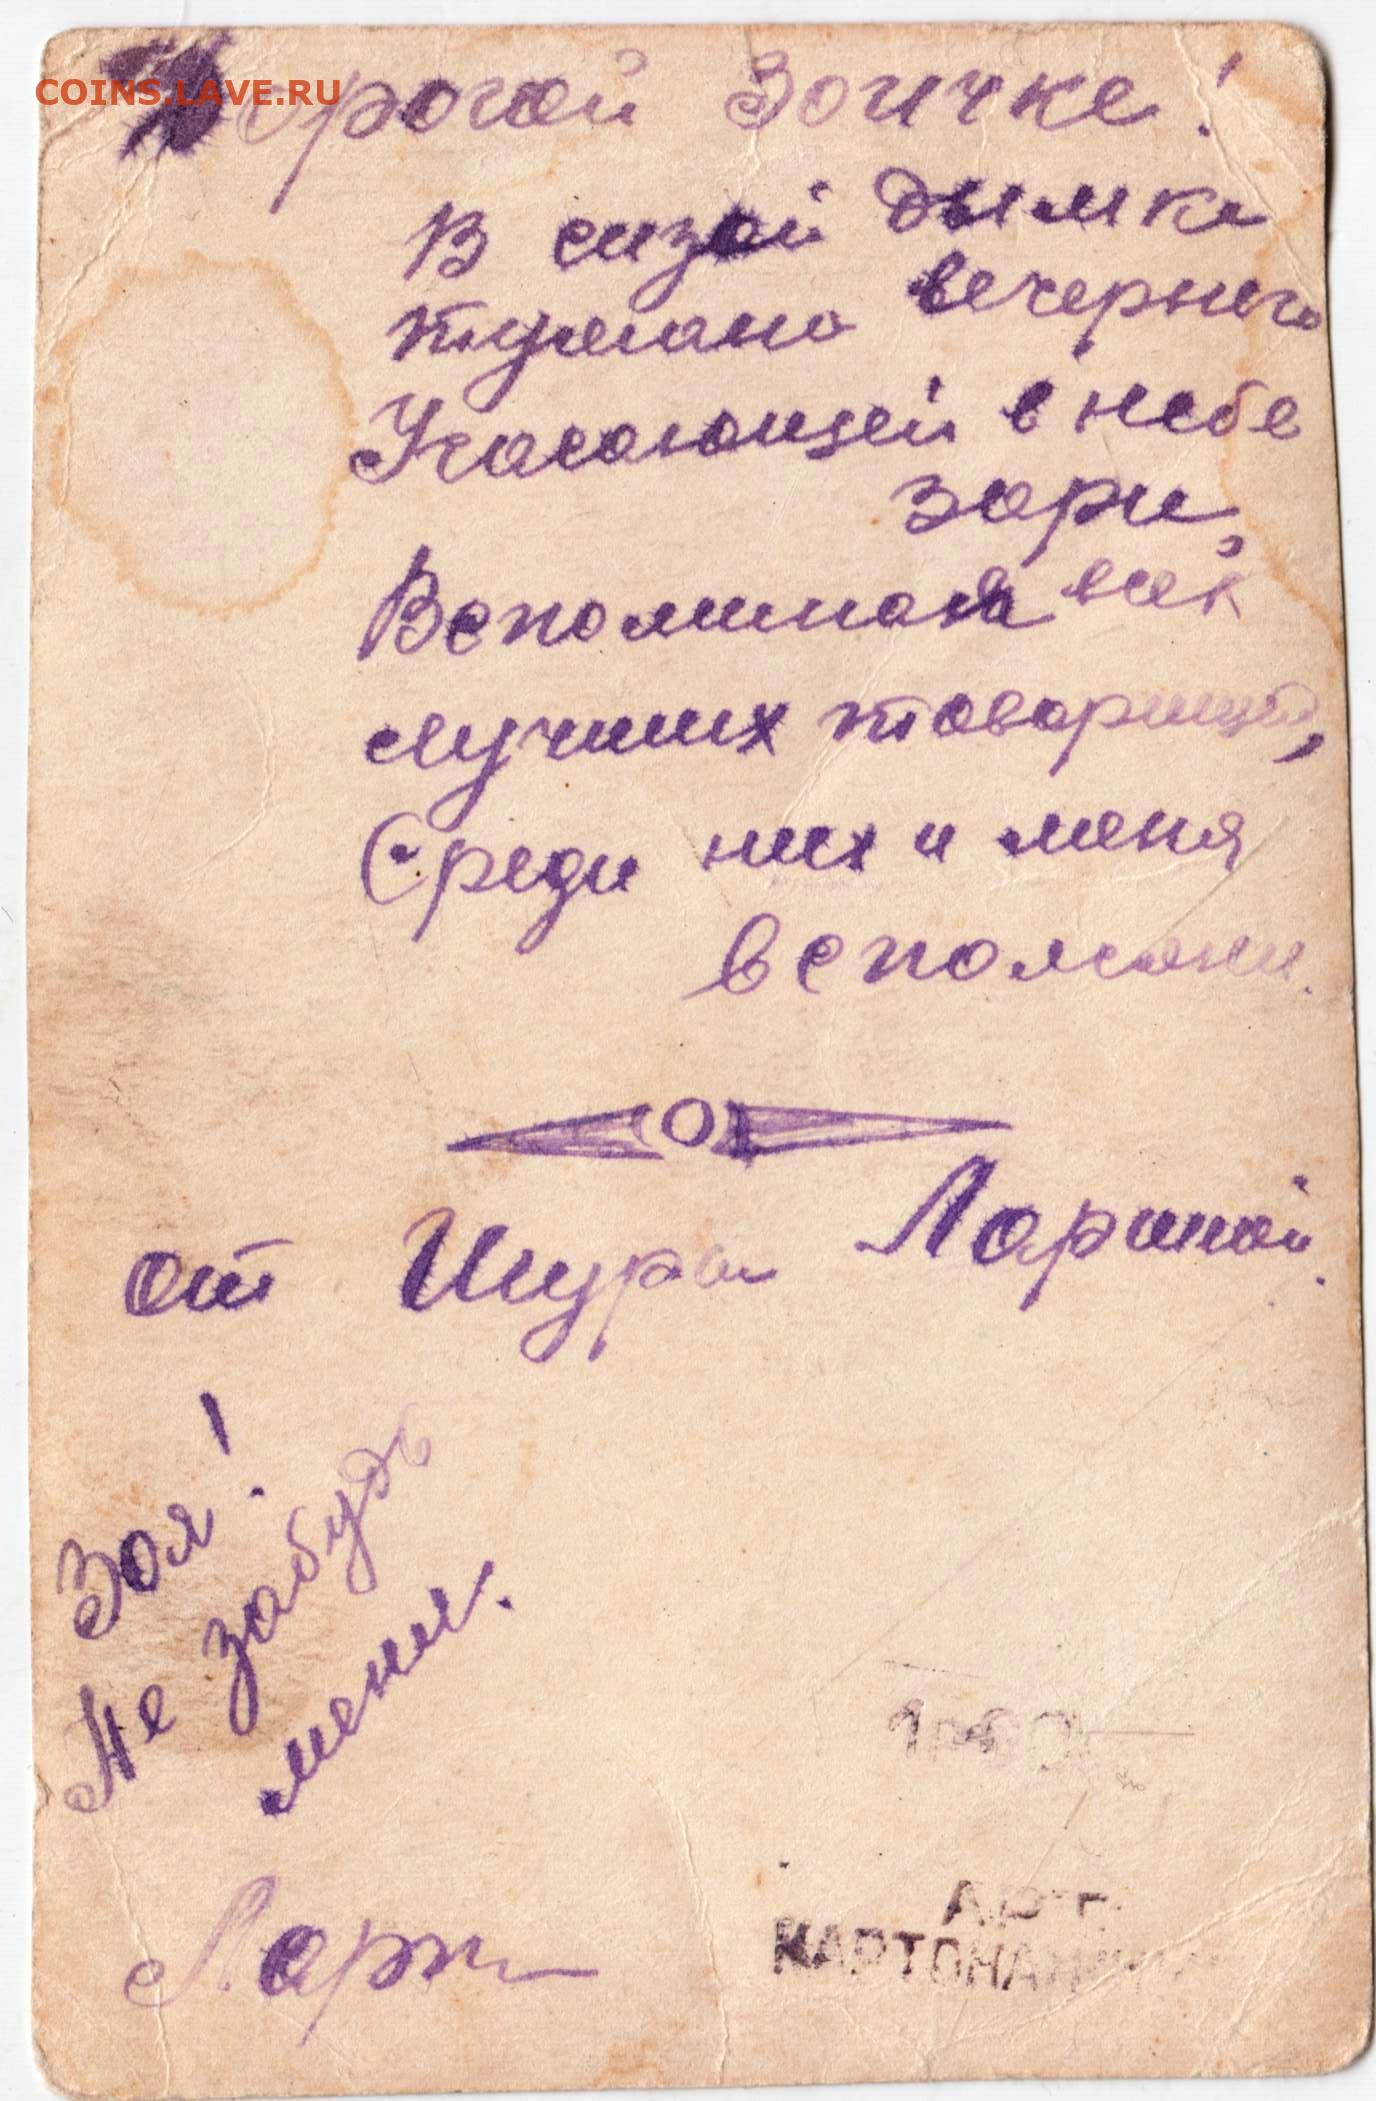 COINS.LAVE.RU
Дорогой Зоичке!
В сизой дымке
тумана вечернего
Угасающей в небе
зари,
Вспоминая всех
лучших товарищей,
Среди них и меня
вспомяни.
от Шуры Лариной.
Зоя!
Не забудь
меня.
Ларин
Арт.
КАРТОНАЖНИК